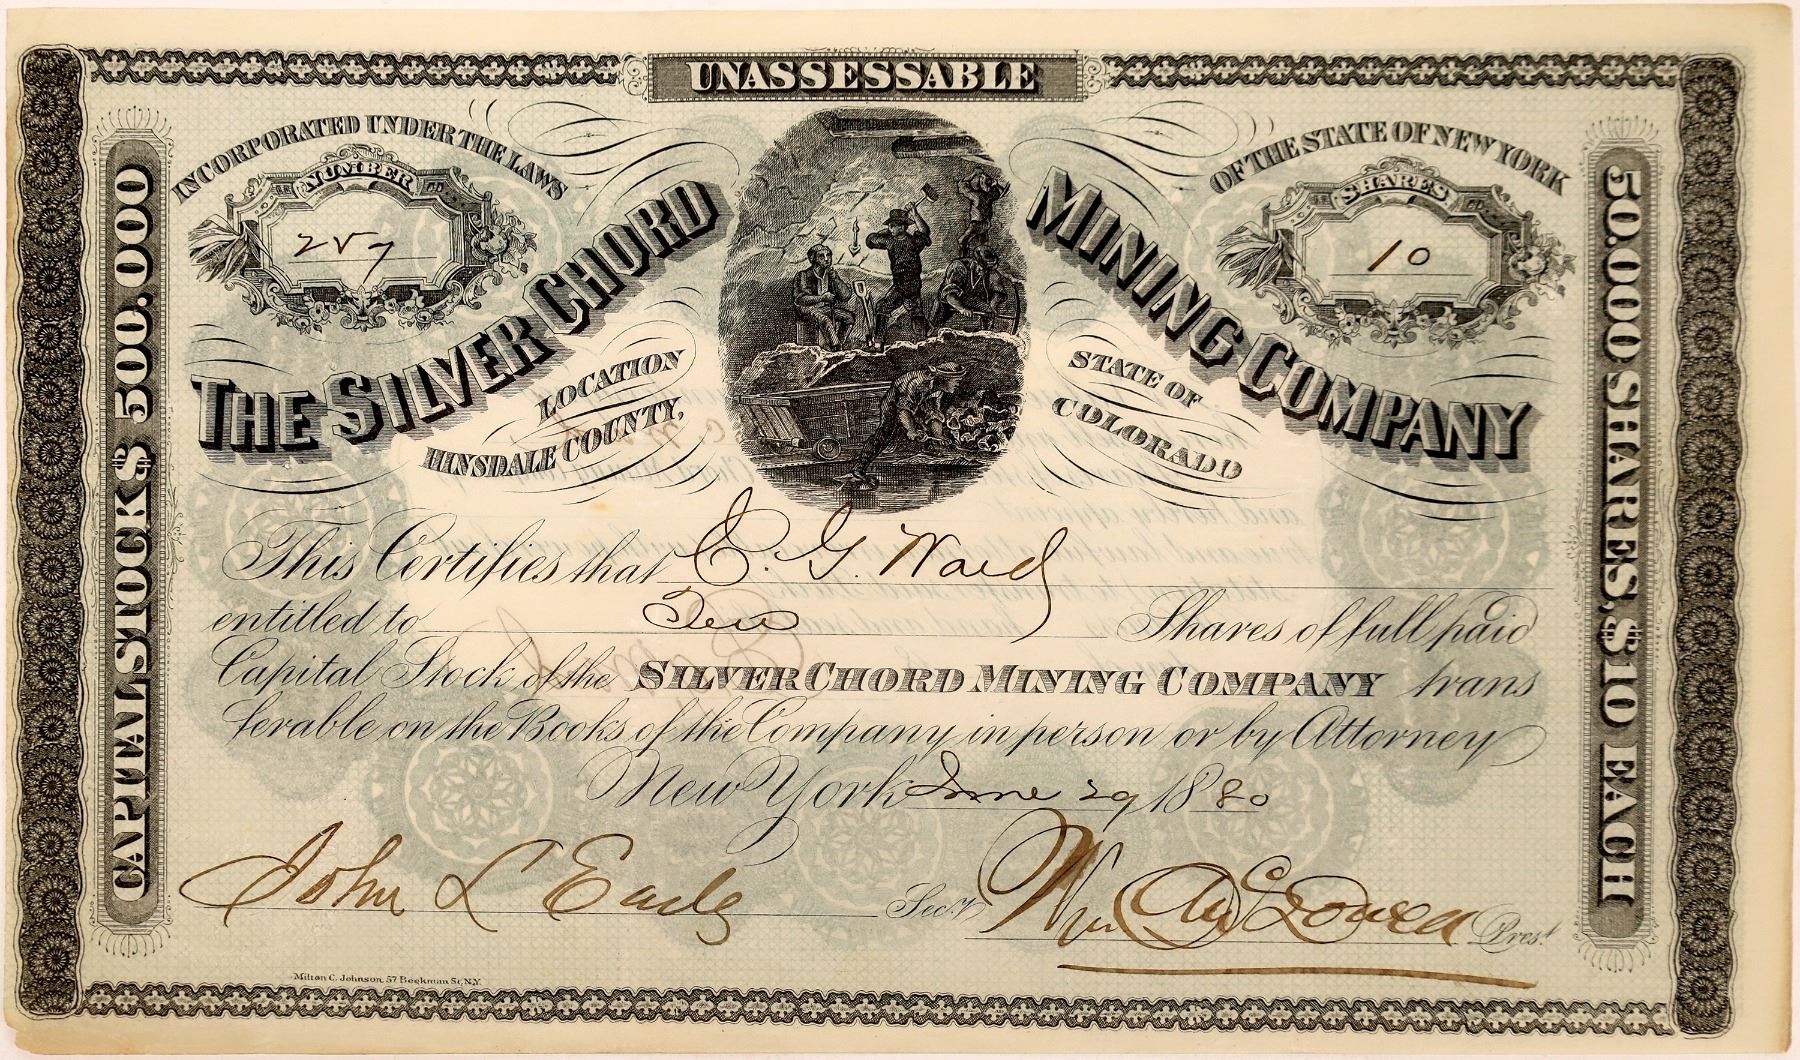 UNASSESSABLE
INCORPORATED UNDER THE LAWS
OF THE STATE OF NEW YORK
NUMBER
257
SHARES
10
THE SILVER CHORD
MINING COMPANY
LOCATION
HINSDALE COUNTY,
STATE OF
COLORADO
CAPITAL STOCK $ 500.000
50.000 SHARES, $10 EACH
This Certifies that E. G. Ward
entitled to Ten Shares of full paid
Capital Stock of the SILVER CHORD MINING COMPANY trans
ferable on the Books of the Company in person or by Attorney
New York June 29 1880
John L Early Secy.
Wm Pres.t
Milton C. Johnson, 57 Beekman St, N.Y.